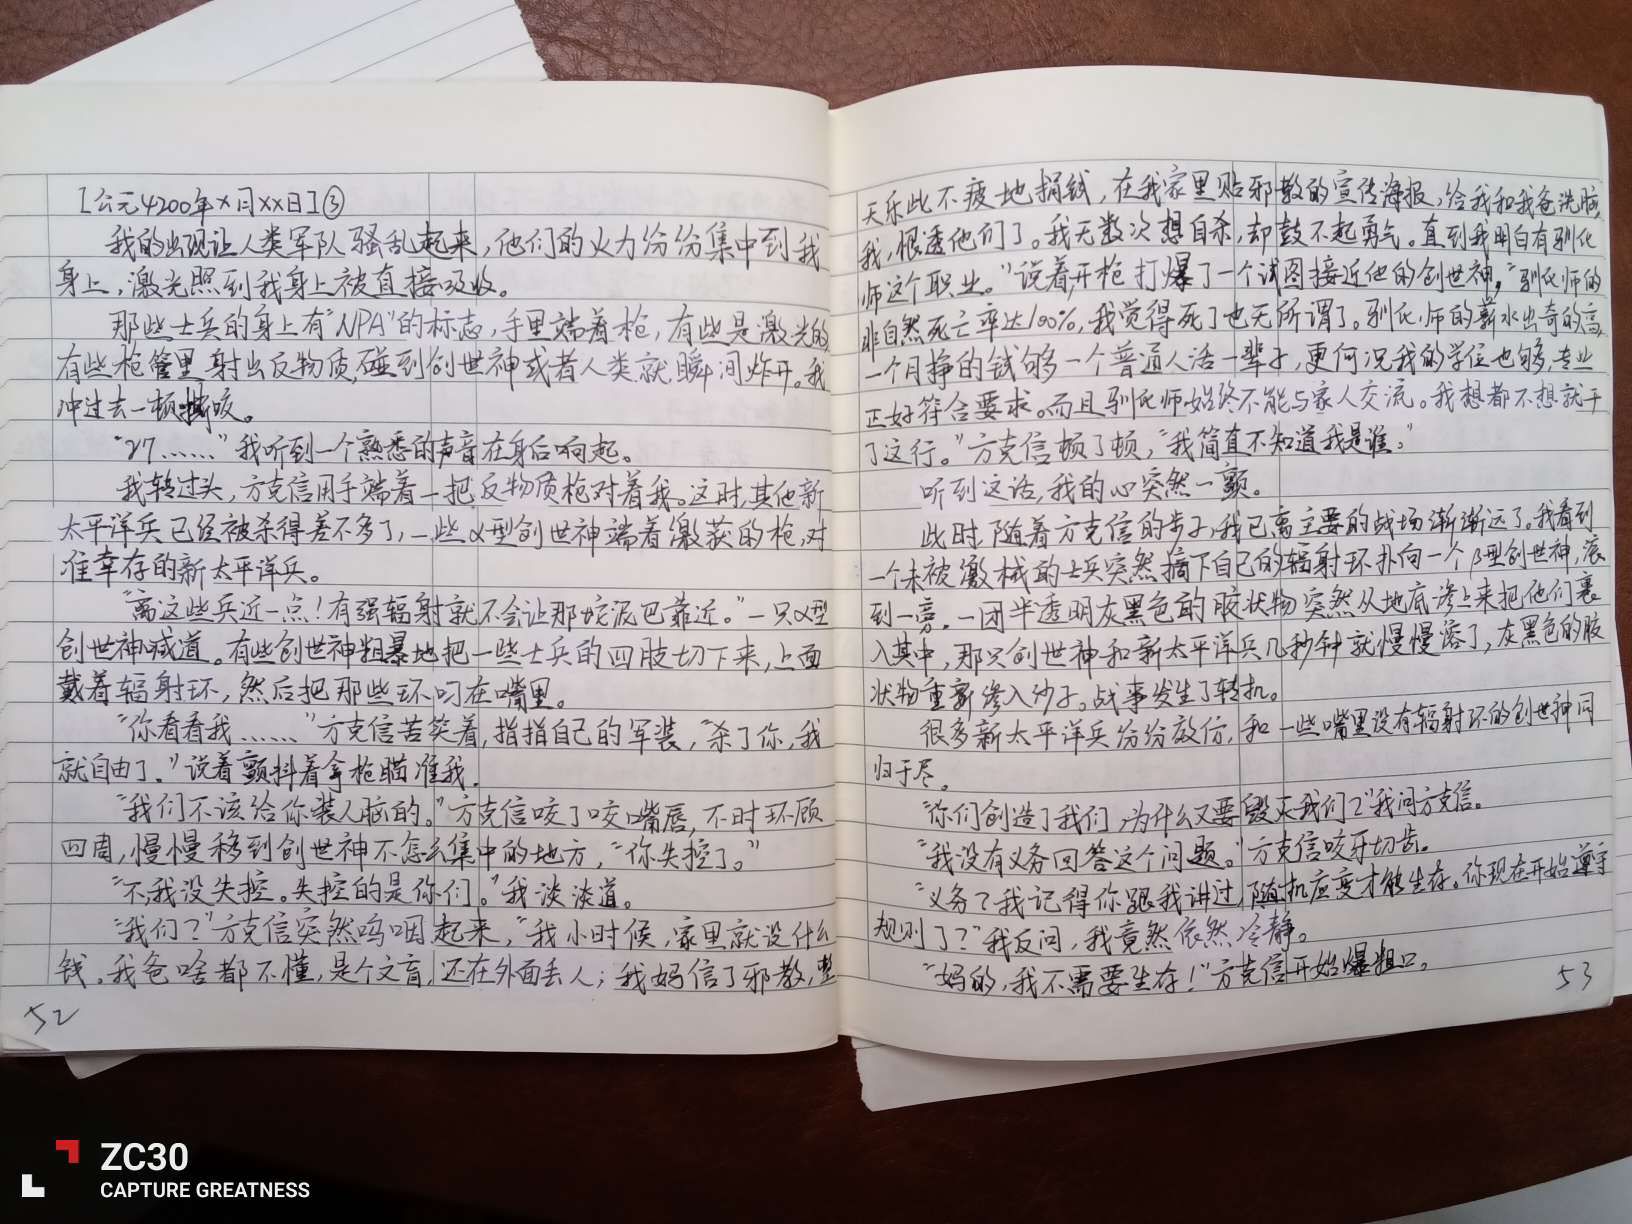 [公元4200年×月××日]③
我的出现让人类军队骚乱起来，他们的火力份份集中到我
身上，激光照到我身上被直接吸收。
那些士兵的身上有“NPA”的标志，手里端着枪，有些是激光的，
有些枪管里射出反物质，碰到创世神或者人类就瞬间炸开。我
冲过去一顿撕咬。
“27……”我听到一个熟悉的声音在身后响起。
我转过头，方克信用手端着一把反物质枪对着我。这时，其他新
太平洋兵已经被杀得差不多了，一些α型创世神端着激获的枪，对
准幸存的新太平洋兵。
“离这些兵近一点！有强辐射就不会让那坨泥巴靠近。”一只α型
创世神喊道。有些创世神粗暴地把一些士兵的四肢切下来，上面
戴着辐射环，然后把那些环叼在嘴里。
“你看看我……”方克信苦笑着，指指自己的军装，“杀了你，我
就自由了。”说着颤抖着拿枪瞄准我。
“我们不该给你装人脑的。”方克信咬了咬嘴唇，不时环顾
四周，慢慢移到创世神不怎么集中的地方，“你失控了。”
“不，我没失控。失控的是你们。”我淡淡道。
“我们？”方克信突然呜咽起来，“我小时候，家里就没什么
钱。我爸啥都不懂，是个文盲，还在外面丢人；我妈信了邪教，整
52
天乐此不疲地捐钱，在我家里贴邪教的宣传海报，给我和我爸洗脑，
我，恨透他们了。我无数次想自杀，却鼓不起勇气。直到我明白有驯化
师这个职业。”说着开枪打爆了一个试图接近他的创世神，“驯化师的
非自然死亡率达100%，我觉得死了也无所谓了。驯化师的薪水出奇的高，
一个月挣的钱够一个普通人活一辈子，更何况我的学位也够，专业
正好符合要求。而且驯化师始终不能与家人交流。我想都不想就干
了这行。”方克信顿了顿，“我简直不知道我是谁。”
听到这话，我的心突然一颤。
此时，随着方克信的步子，我已离主要的战场渐渐远了。我看到
一个未被激械的士兵突然摘下自己的辐射环扑向一个β型创世神，滚
到一旁。一团半透明灰黑色的胶状物突然从地底渗上来把他们裹
入其中，那只创世神和新太平洋兵几秒钟就慢慢溶了，灰黑色的胶
状物重新渗入沙子。战事发生了转机。
很多新太平洋兵份份效仿，和一些嘴里没有辐射环的创世神同
归于尽。
“你们创造了我们，为什么又要毁灭我们？”我问方克信。
“我没有义务回答这个问题。”方克信咬牙切齿。
“义务？我记得你跟我讲过，随机应变才能生存。你现在开始遵守
规则了？”我反问，我竟然依然冷静。
“妈的，我不需要生存！”方克信开始爆粗口。
53
ZC30
CAPTURE GREATNESS